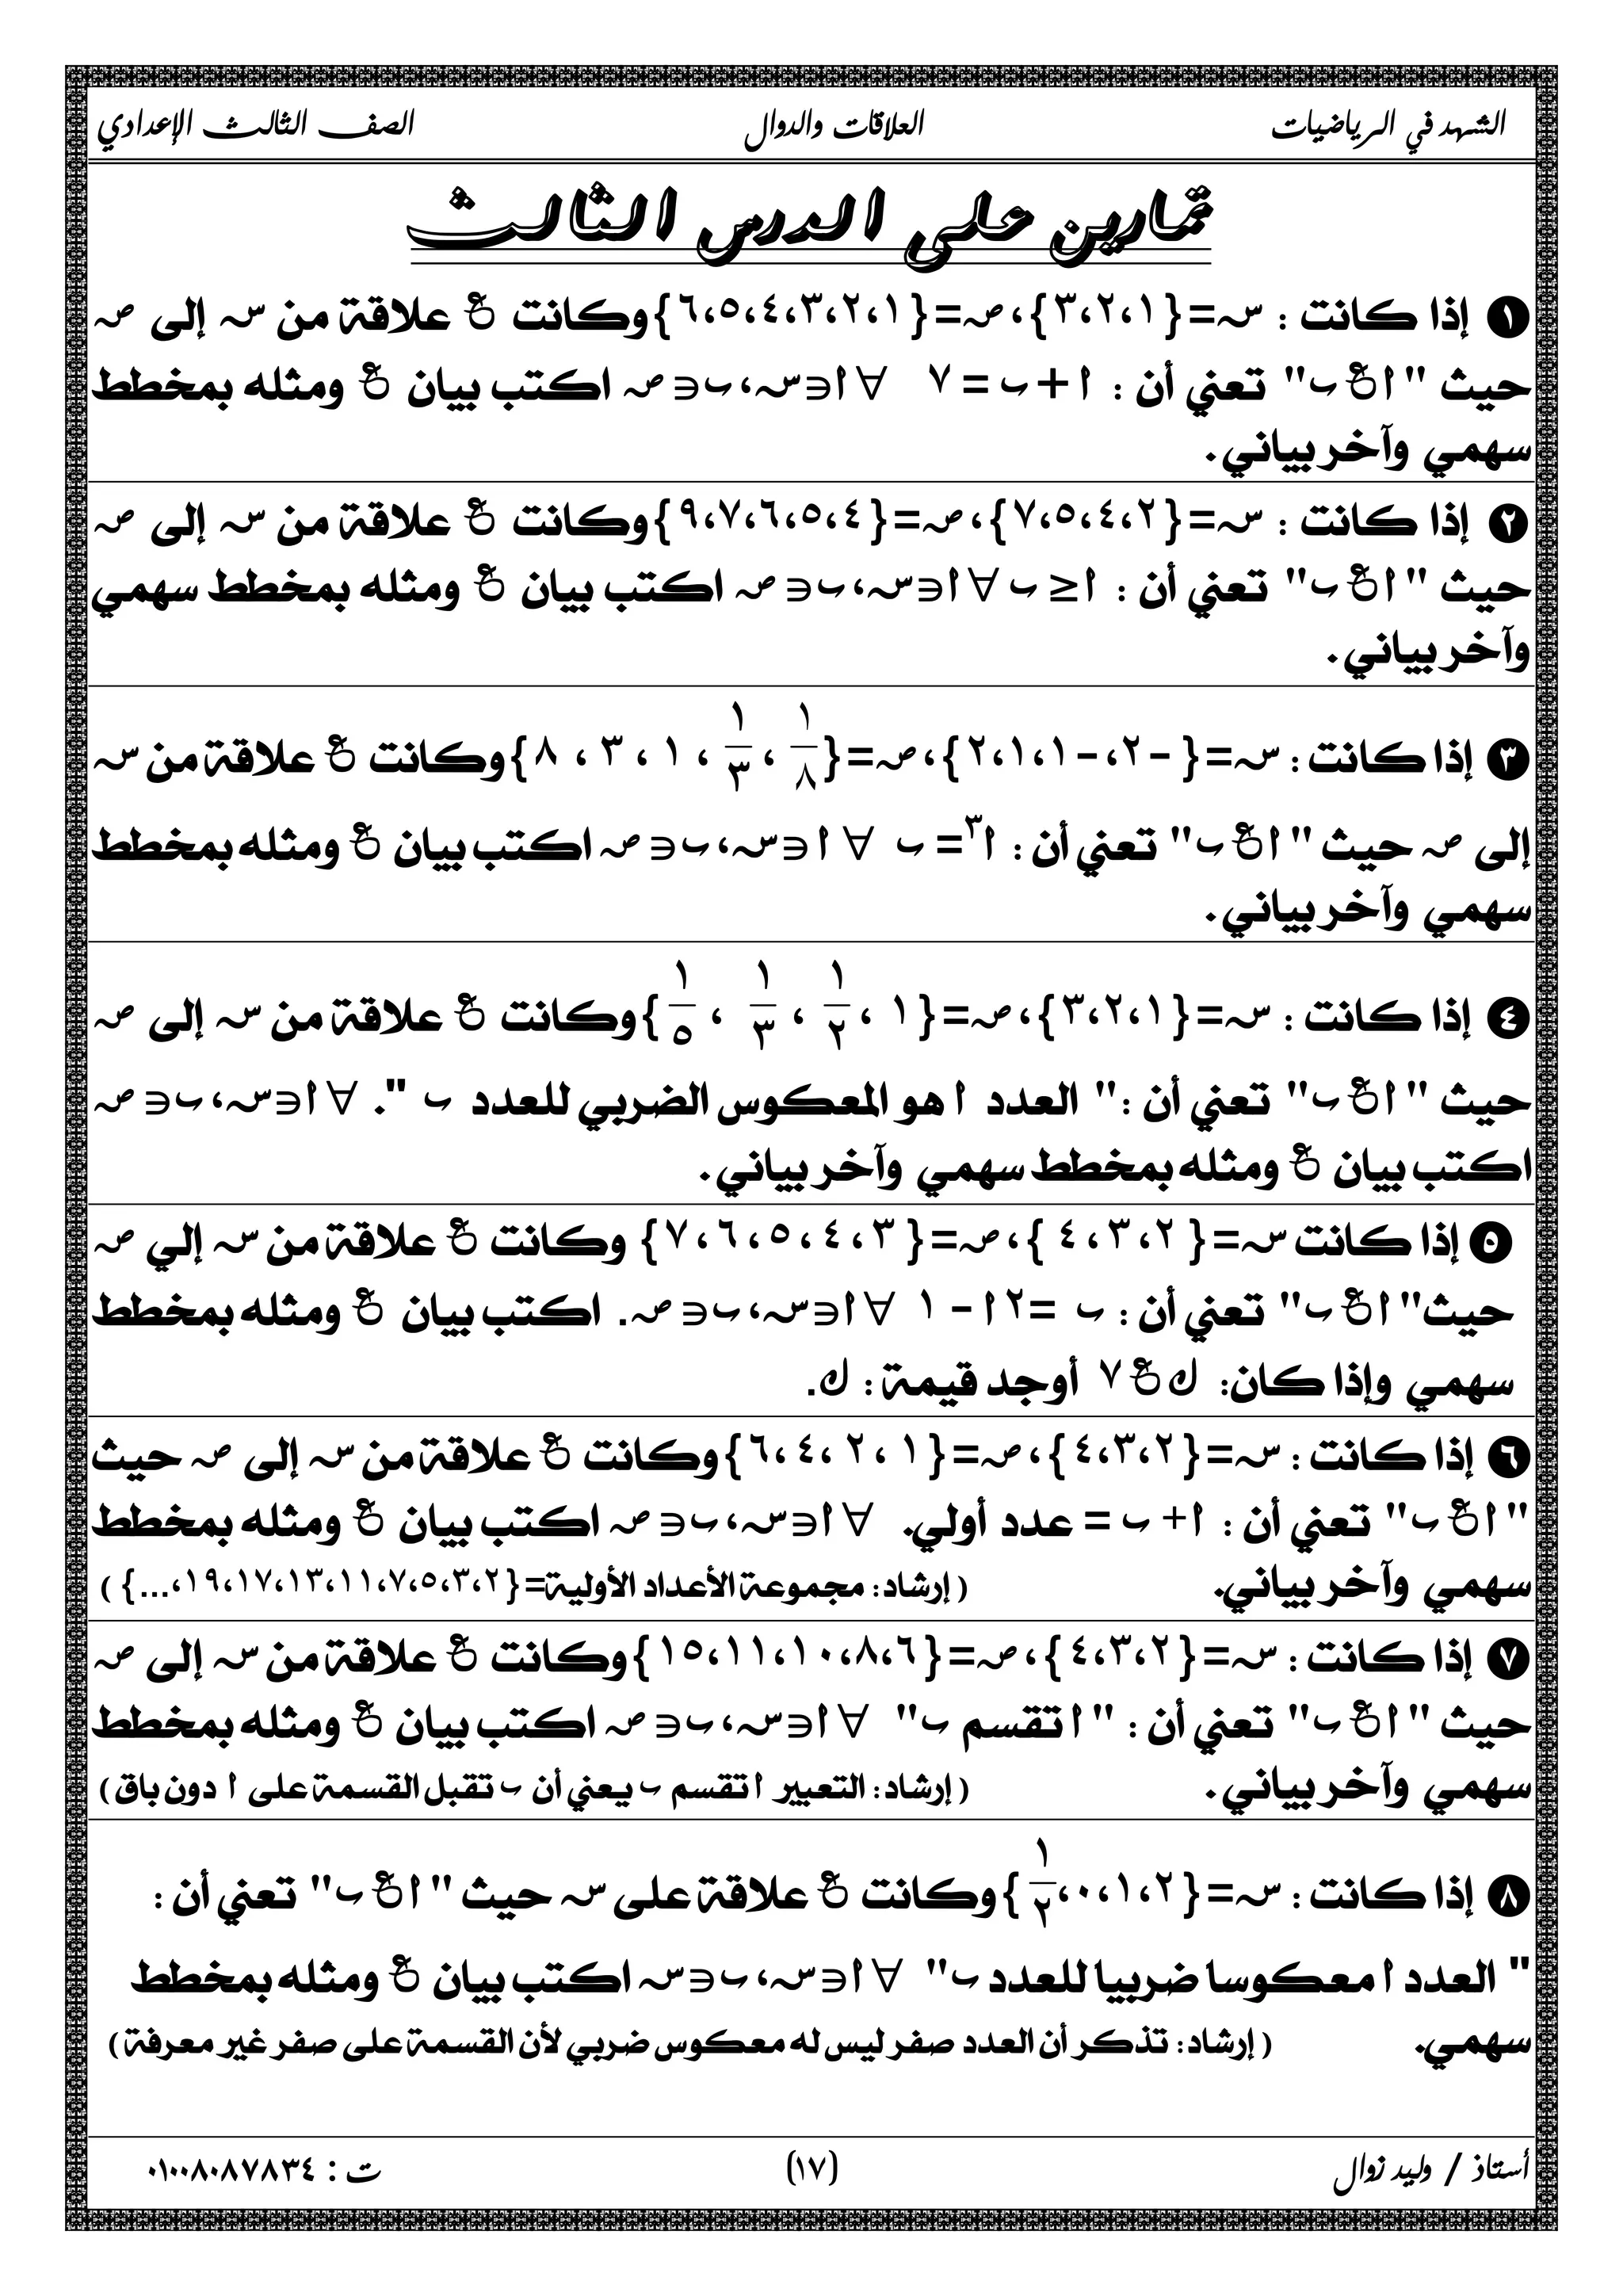 الشهد في الرياضيات العلاقات والدوال الصف الثالث الإعدادي
تمارين على الدرس الثالث
١ إذا كانت : س={١،٢،٣}، ص={١،٢،٣،٤،٥،٦}وكانت ع علاقة من س إلى ص
حيث "ا ع ب" تعني أن : ا + ب = ٧ ∀ ا∈س، ب∈ص اكتب بيان ع ومثله بمخطط
سهمي وآخر بياني.
٢ إذا كانت : س={٢،٤،٥،٧}، ص={٤،٥،٦،٧،٩}وكانت ع علاقة من س إلى ص
حيث "ا ع ب" تعني أن : ا ≥ ب ∀ ا∈س، ب∈ص اكتب بيان ع ومثله بمخطط سهمي
وآخر بياني.
٣ إذا كانت : س={-٢،-١،١،٢}، ص={١/٨ ، ١/٣ ، ١ ، ٣ ، ٨}وكانت ع علاقة من س
إلى ص حيث "ا ع ب" تعني أن : ا٣= ب ∀ ا∈س، ب∈ص اكتب بيان ع ومثله بمخطط
سهمي وآخر بياني.
٤ إذا كانت : س={١،٢،٣}، ص={١ ، ١/٢ ، ١/٣ ، ١/٥}وكانت ع علاقة من س إلى ص
حيث "ا ع ب" تعني أن :" العدد ا هو المعكوس الضربي للعدد ب ". ∀ ا∈س، ب∈ص
اكتب بيان ع ومثله بمخطط سهمي وآخر بياني.
٥ إذا كانت س={٢،٣،٤ }، ص={٣،٤،٥،٦،٧} وكانت ع علاقة من س إلي ص
حيث"ا ع ب" تعني أن : ب =٢ا- ١ ∀ ا∈س، ب∈ص. اكتب بيان ع ومثله بمخطط
سهمي وإذا كان: ك ع ٧ أوجد قيمة : ك.
٦ إذا كانت : س={٢،٣،٤}، ص={١ ، ٢ ،٤،٦}وكانت ع علاقة من س إلى ص حيث
"ا ع ب" تعني أن : ا+ ب = عدد أولي. ∀ ا∈س، ب∈ص اكتب بيان ع ومثله بمخطط
سهمي وآخر بياني. (إرشاد: مجموعة الأعداد الأولية={٢،٣،٥،٧،١١،١٣،١٧،١٩،...} )
٧ إذا كانت : س={٢،٣،٤}، ص={٦،٨،١٠،١١،١٥}وكانت ع علاقة من س إلى ص
حيث "ا ع ب" تعني أن : "ا تقسم ب" ∀ ا∈س، ب∈ص اكتب بيان ع ومثله بمخطط
سهمي وآخر بياني. (إرشاد: التعبير ا تقسم ب يعني أن ب تقبل القسمة على ا دون باق)
٨ إذا كانت : س={٢،١،٠،١/٢}وكانت ع علاقة على س حيث "ا ع ب" تعني أن :
" العدد ا معكوسا ضربيا للعدد ب" ∀ ا∈س، ب∈س اكتب بيان ع ومثله بمخطط
سهمي. (إرشاد: تذكر أن العدد صفر ليس له معكوس ضربي لأن القسمة على صفر غير معرفة)
أستاذ / وليد زوال (١٧) ت : ٠١٠٠٨٠٨٧٨٣٤